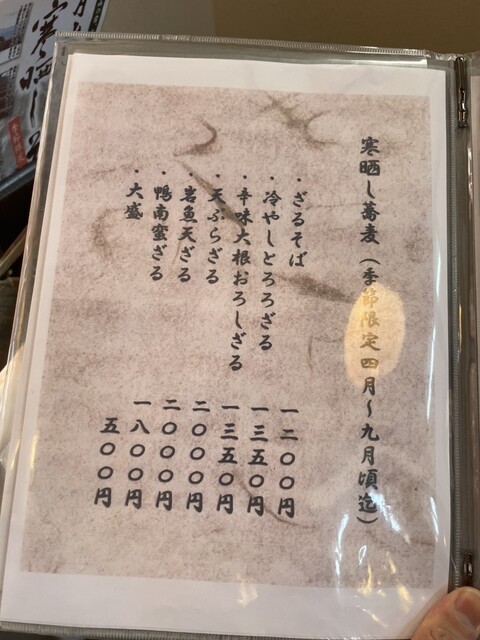 寒晒し蕎麦(季節限定四月~九月頃迄)
・ざるそば 一二〇〇円
・冷やしとろろざる 一三五〇円
・辛味大根おろしざる 一三五〇円
・天ぷらざる 二〇〇〇円
・岩魚天ざる 二〇〇〇円
・鴨南蛮ざる 一八〇〇円
・大盛 五〇〇円
寒晒し